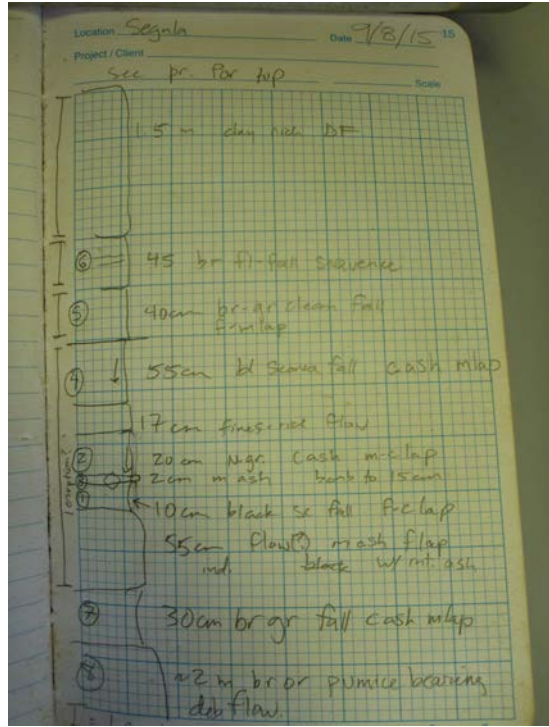 Location Segula Date 9/8/15 15
Project / Client
see pr. for top Scale
1.5 m clay rich DF
⑥ 45 br fl-fall sequence
⑤ 40cm br-gr clean fall
f-mlap
④ ↓ 55cm bl scoria fall cash mlap
17 cm fines-rich flow
② 20cm N.gr. cash m-clap
③ 2cm m ash bomb to 15cm
① 10cm black sc fall f-clap
1 eruption?
55cm flow(?) mash flap
ind. black w/ int. ash
⑦ 30cm br gr fall cash mlap
⑧ ~2m br or pumice bearing
deb flow.